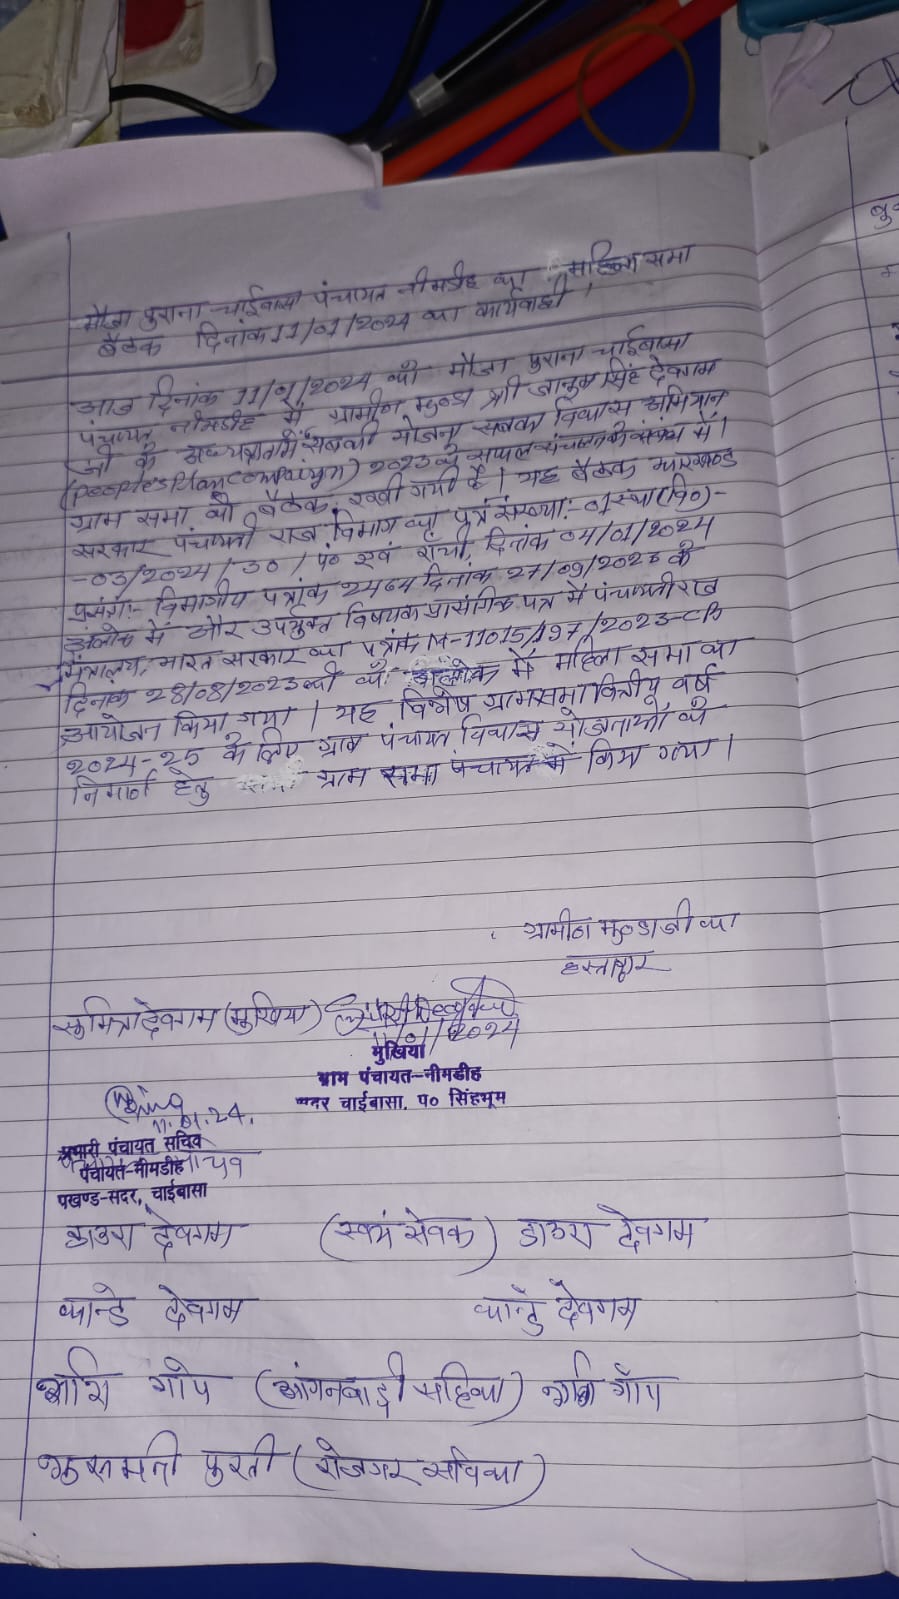 मौजा पुराना चाईबासा पंचायत नीमडीह का महिला सभा
बैठक दिनांक 11/01/2024 का कार्यवाही।
आज दिनांक 11/01/2024 को मौजा पुराना चाईबासा
पंचायत नीमडीह में ग्रामीण मुण्डा श्री जानुम सिंह देवगम
जी के अध्यक्षता में सबकी योजना सबका विकास अभियान
(People's Plan Campaign) 2023 के सफल संचालन के संबंध में।
ग्राम सभा की बैठक रखी गयी है। यह बैठक झारखण्ड
सरकार पंचायती राज विभाग का पत्र संख्या:- 01स्था(वि०)-
-03/2024/30/पं० एवं राँची, दिनांक 04/01/2024
प्रसंग:- विभागीय पत्रांक 2464 दिनांक 27/09/2023 के
आलोक में और उपर्युक्त विषयक प्रासंगिक पत्र में पंचायतीराज
मंत्रालय, भारत सरकार का पत्रांक M-11015/197/2023-CB
दिनांक 28/08/2023 को के आलोक में महिला सभा का
आयोजन किया गया। यह विशेष ग्रामसभा वित्तीय वर्ष
2024-25 के लिए ग्राम पंचायत विकास योजनाओं के
निर्माण हेतु ग्राम सभा पंचायत में किया गया।
ग्रामीण मुण्डा जी का
हस्ताक्षर
सुमित्रा देवगम (मुखिया)
11/01/2024
मुखिया
ग्राम पंचायत-नीमडीह
सदर चाईबासा, प० सिंहभूम
11.01.24.
प्रभारी पंचायत सचिव
पंचायत-नीमडीह
प्रखण्ड-सदर, चाईबासा
डाउरा देवगम (स्वयं सेवक) डाउरा देवगम
कान्डे देवगम कान्डे देवगम
शशि गोप (आंगनबाड़ी सहिया) शशि गोप
पुरती (रोजगार सेविका)